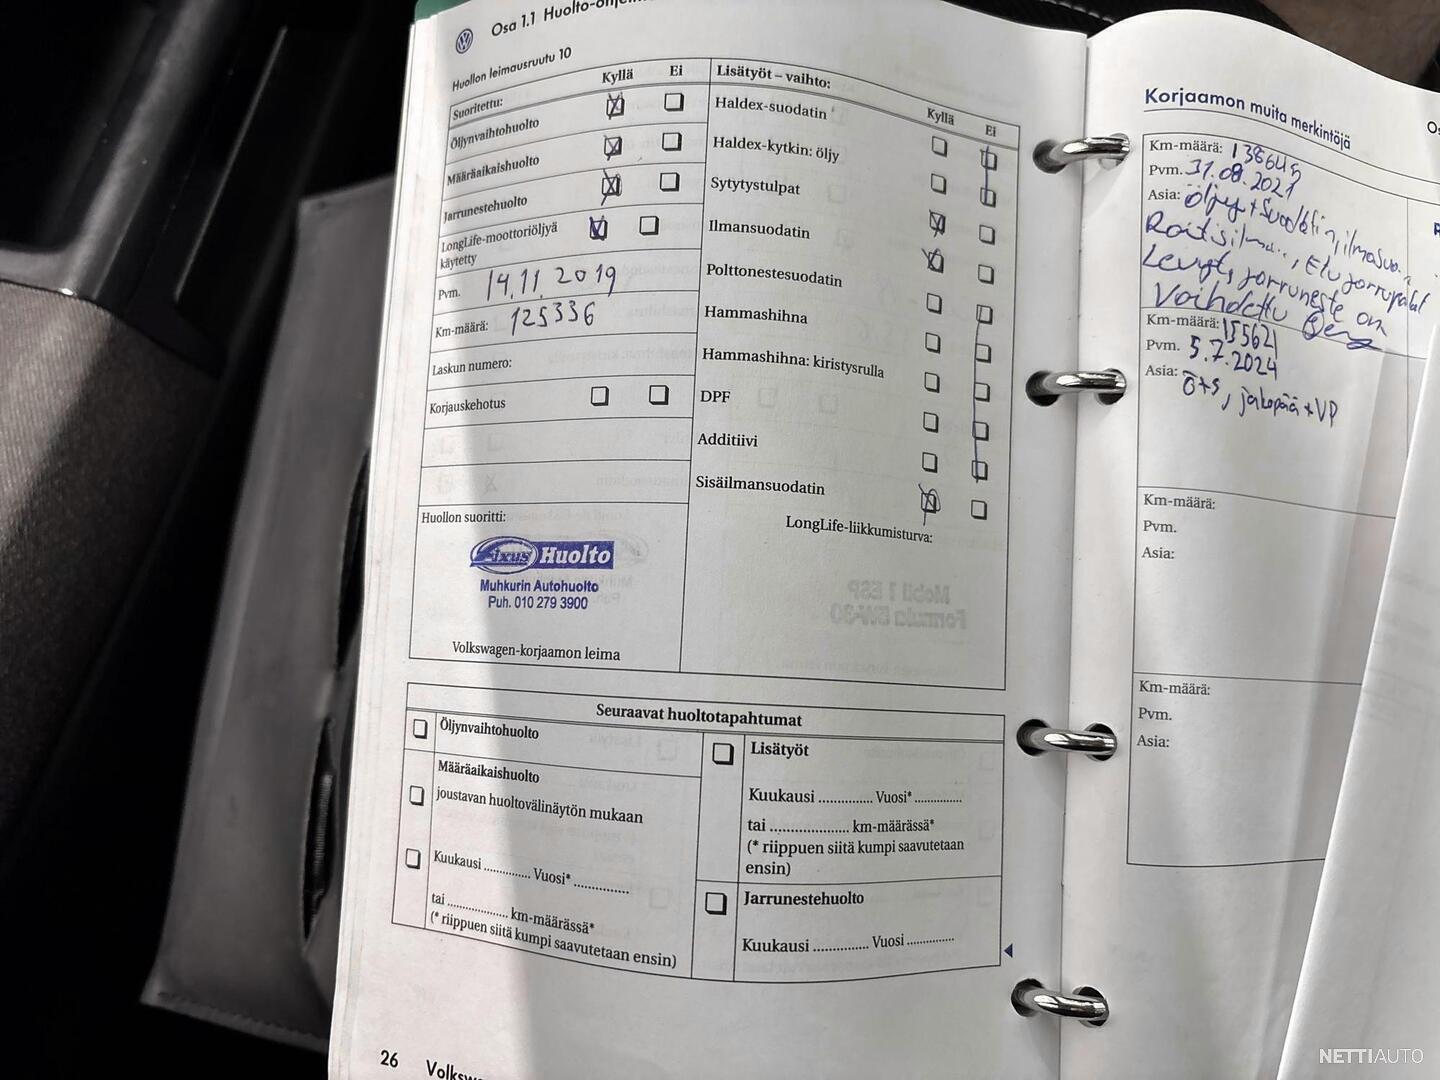 Osa 1.1 Huolto-ohjelma
Huollon leimausruutu 10
Suoritettu: Kyllä Ei
Öljynvaihtohuolto
Määräaikaishuolto
Jarrunestehuolto
LongLife-moottoriöljyä
käytetty
Pvm. 14.11.2019
Km-määrä: 125336
Laskun numero:
Korjauskehotus
Huollon suoritti:
Fixus Huolto
Muhkurin Autohuolto
Puh. 010 279 3900
Volkswagen-korjaamon leima
Lisätyöt – vaihto: Kyllä Ei
Haldex-suodatin
Haldex-kytkin: öljy
Sytytystulpat
Ilmansuodatin
Polttonestesuodatin
Hammashihna
Hammashihna: kiristysrulla
DPF
Additiivi
Sisäilmansuodatin
LongLife-liikkumisturva:
Mobil 1 ESP
Formula 5W-30
Seuraavat huoltotapahtumat
Öljynvaihtohuolto
Määräaikaishuolto
joustavan huoltovälinäytön mukaan
Kuukausi .............. Vuosi* ................
tai .................... km-määrässä*
(* riippuen siitä kumpi saavutetaan ensin)
Lisätyöt
Kuukausi ............... Vuosi* ..............
tai ..................... km-määrässä*
(* riippuen siitä kumpi saavutetaan
ensin)
Jarrunestehuolto
Kuukausi ............... Vuosi ...............
26 Volksw
Korjaamon muita merkintöjä
Km-määrä: 138645
Pvm. 31.08.2021
Asia: Öljyt + Suodatin, ilmasuo..
Raitisilma.., Etu jarrupalat
Levyt, jarruneste on
Vaihdettu
Km-määrä: 155621
Pvm. 5.7.2024
Asia: ö+s, jakopää + VP
Km-määrä:
Pvm.
Asia:
Km-määrä:
Pvm.
Asia:
NETTIAUTO